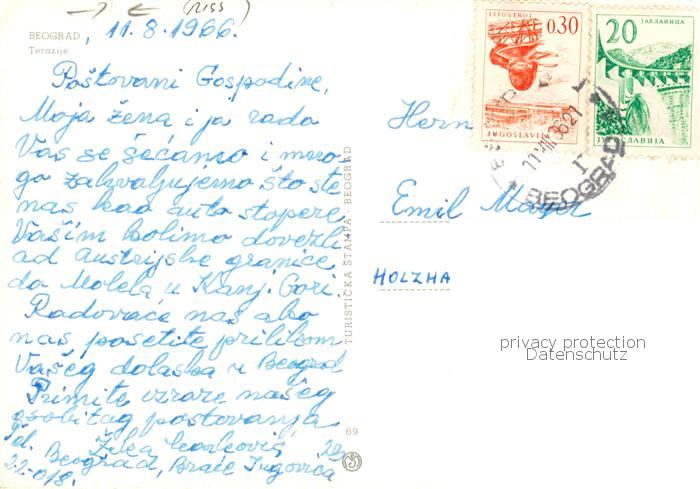 (RISS)
BEOGRAD, 11.8.1966.
Terazije
Poštovani Gospodine,
Moja žena i ja rado
Vas se sećamo i mno
go zahvaljujemo što ste
nas kao auto stopere
Vašim kolima dovezli
od Austrijske granice
do Motela u Kranj. Gori.
Radovaće nas ako
nas posetite prilikom
Vašeg dolaska u Beograd
Primite izraze našeg
osobitog poštovanja
Beograd, Braće Jugovića
22-018.
TURISTIČKA ŠTAMPA - BEOGRAD
69
LITOSTROJ
0.30
JUGOSLAVIJA
ЈАБЛАНИЦА
20
ЈУГОСЛАВИЈА
BEOGRAD
Herrn
Emil Mayer
HOLZHA
privacy protection
Datenschutz